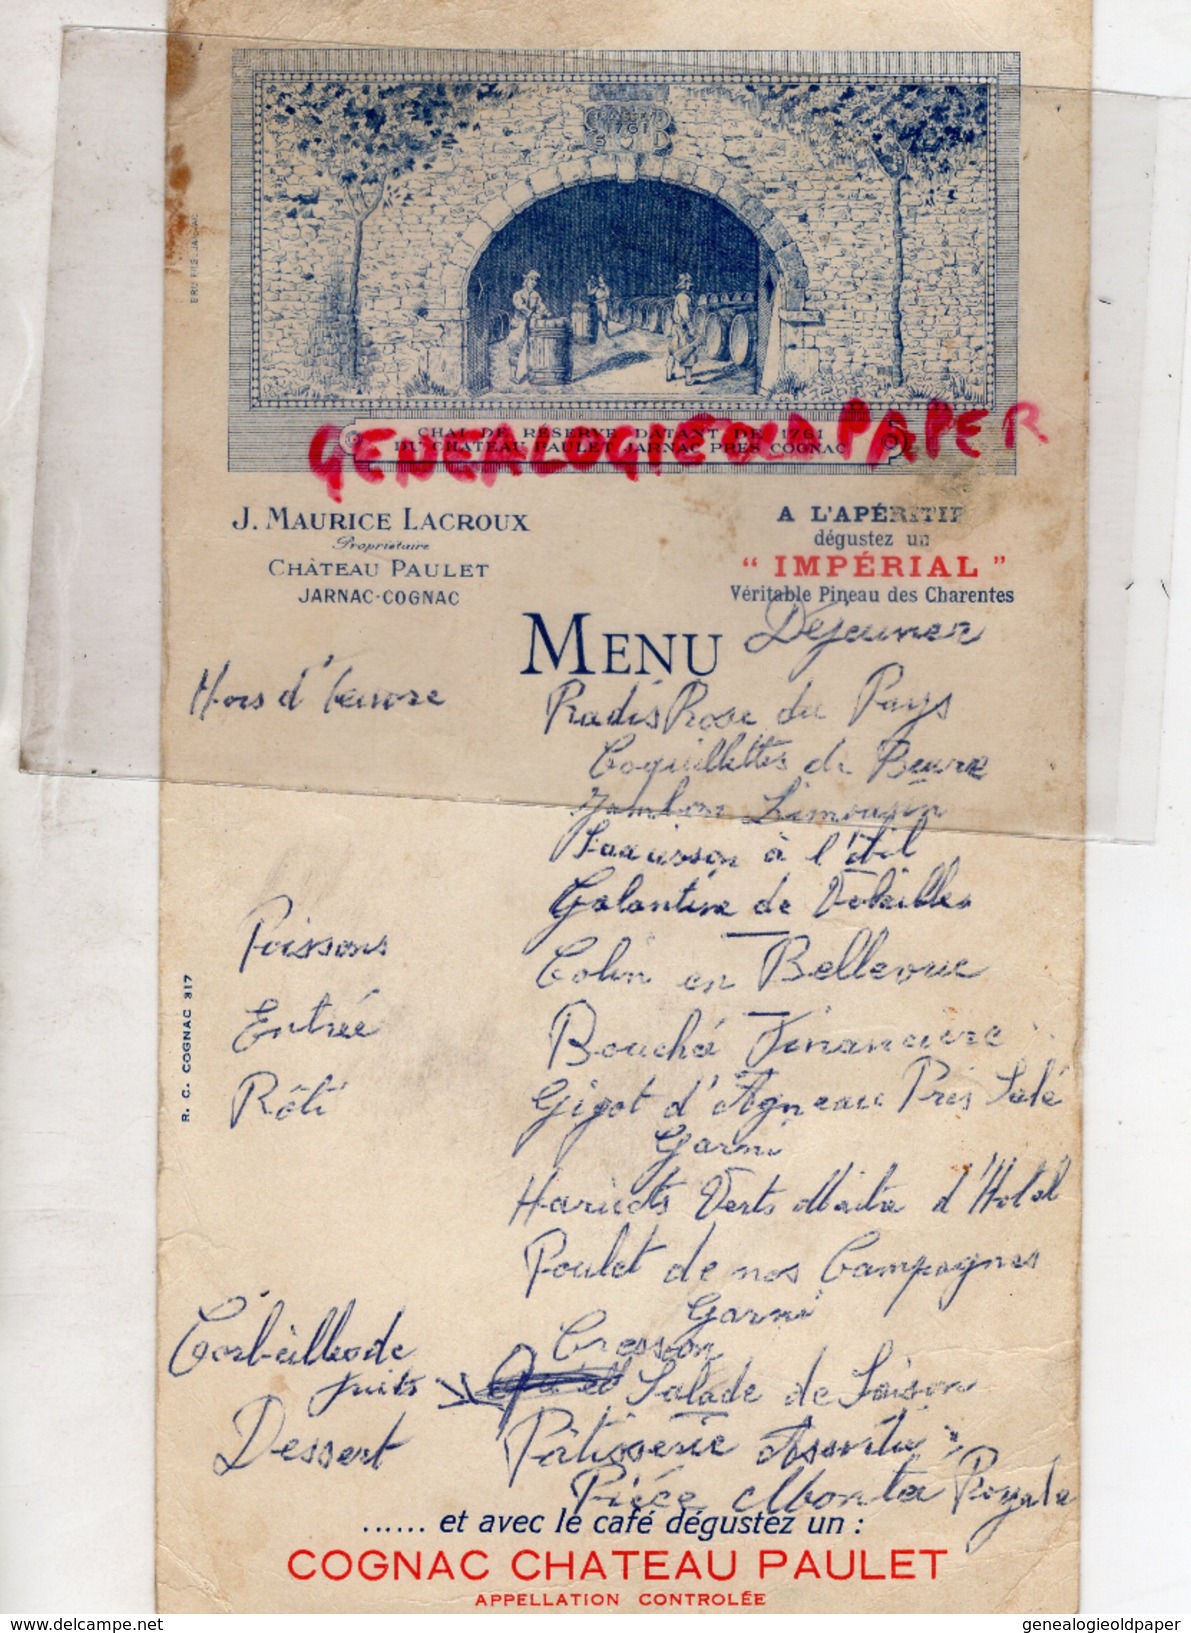 1761
CHAI DE RÉSERVE DATANT DE 1761
DU CHATEAU PAULET JARNAC PRÈS COGNAC
GENEALOGIE OLD PAPER
J. MAURICE LACROUX
Propriétaire
CHÂTEAU PAULET
JARNAC-COGNAC
A L'APÉRITIF
dégustez un
" IMPÉRIAL "
Véritable Pineau des Charentes
MENU Déjeuner
Hors d'œuvre Radis Rose du Pays
Coquillettes de Beurre
Jambon Limousin
Saucisson à l'Ail
Galantine de Volailles
Poissons Colin en Bellevue
Entrée Bouché Financière
Rôti Gigot d'Agneau Prés Salé
Garni
Haricots Verts Maitre d'Hotel
Poulet de nos Campagnes
Garni
Cresson
Corbeille de
fruits Salade de Saison
Dessert Pâtisserie Assortie
Pièce Montée Royale
...... et avec le café dégustez un :
COGNAC CHATEAU PAULET
APPELLATION CONTROLÉE
R. C. COGNAC 317
delcampe.net
genealogieoldpaper